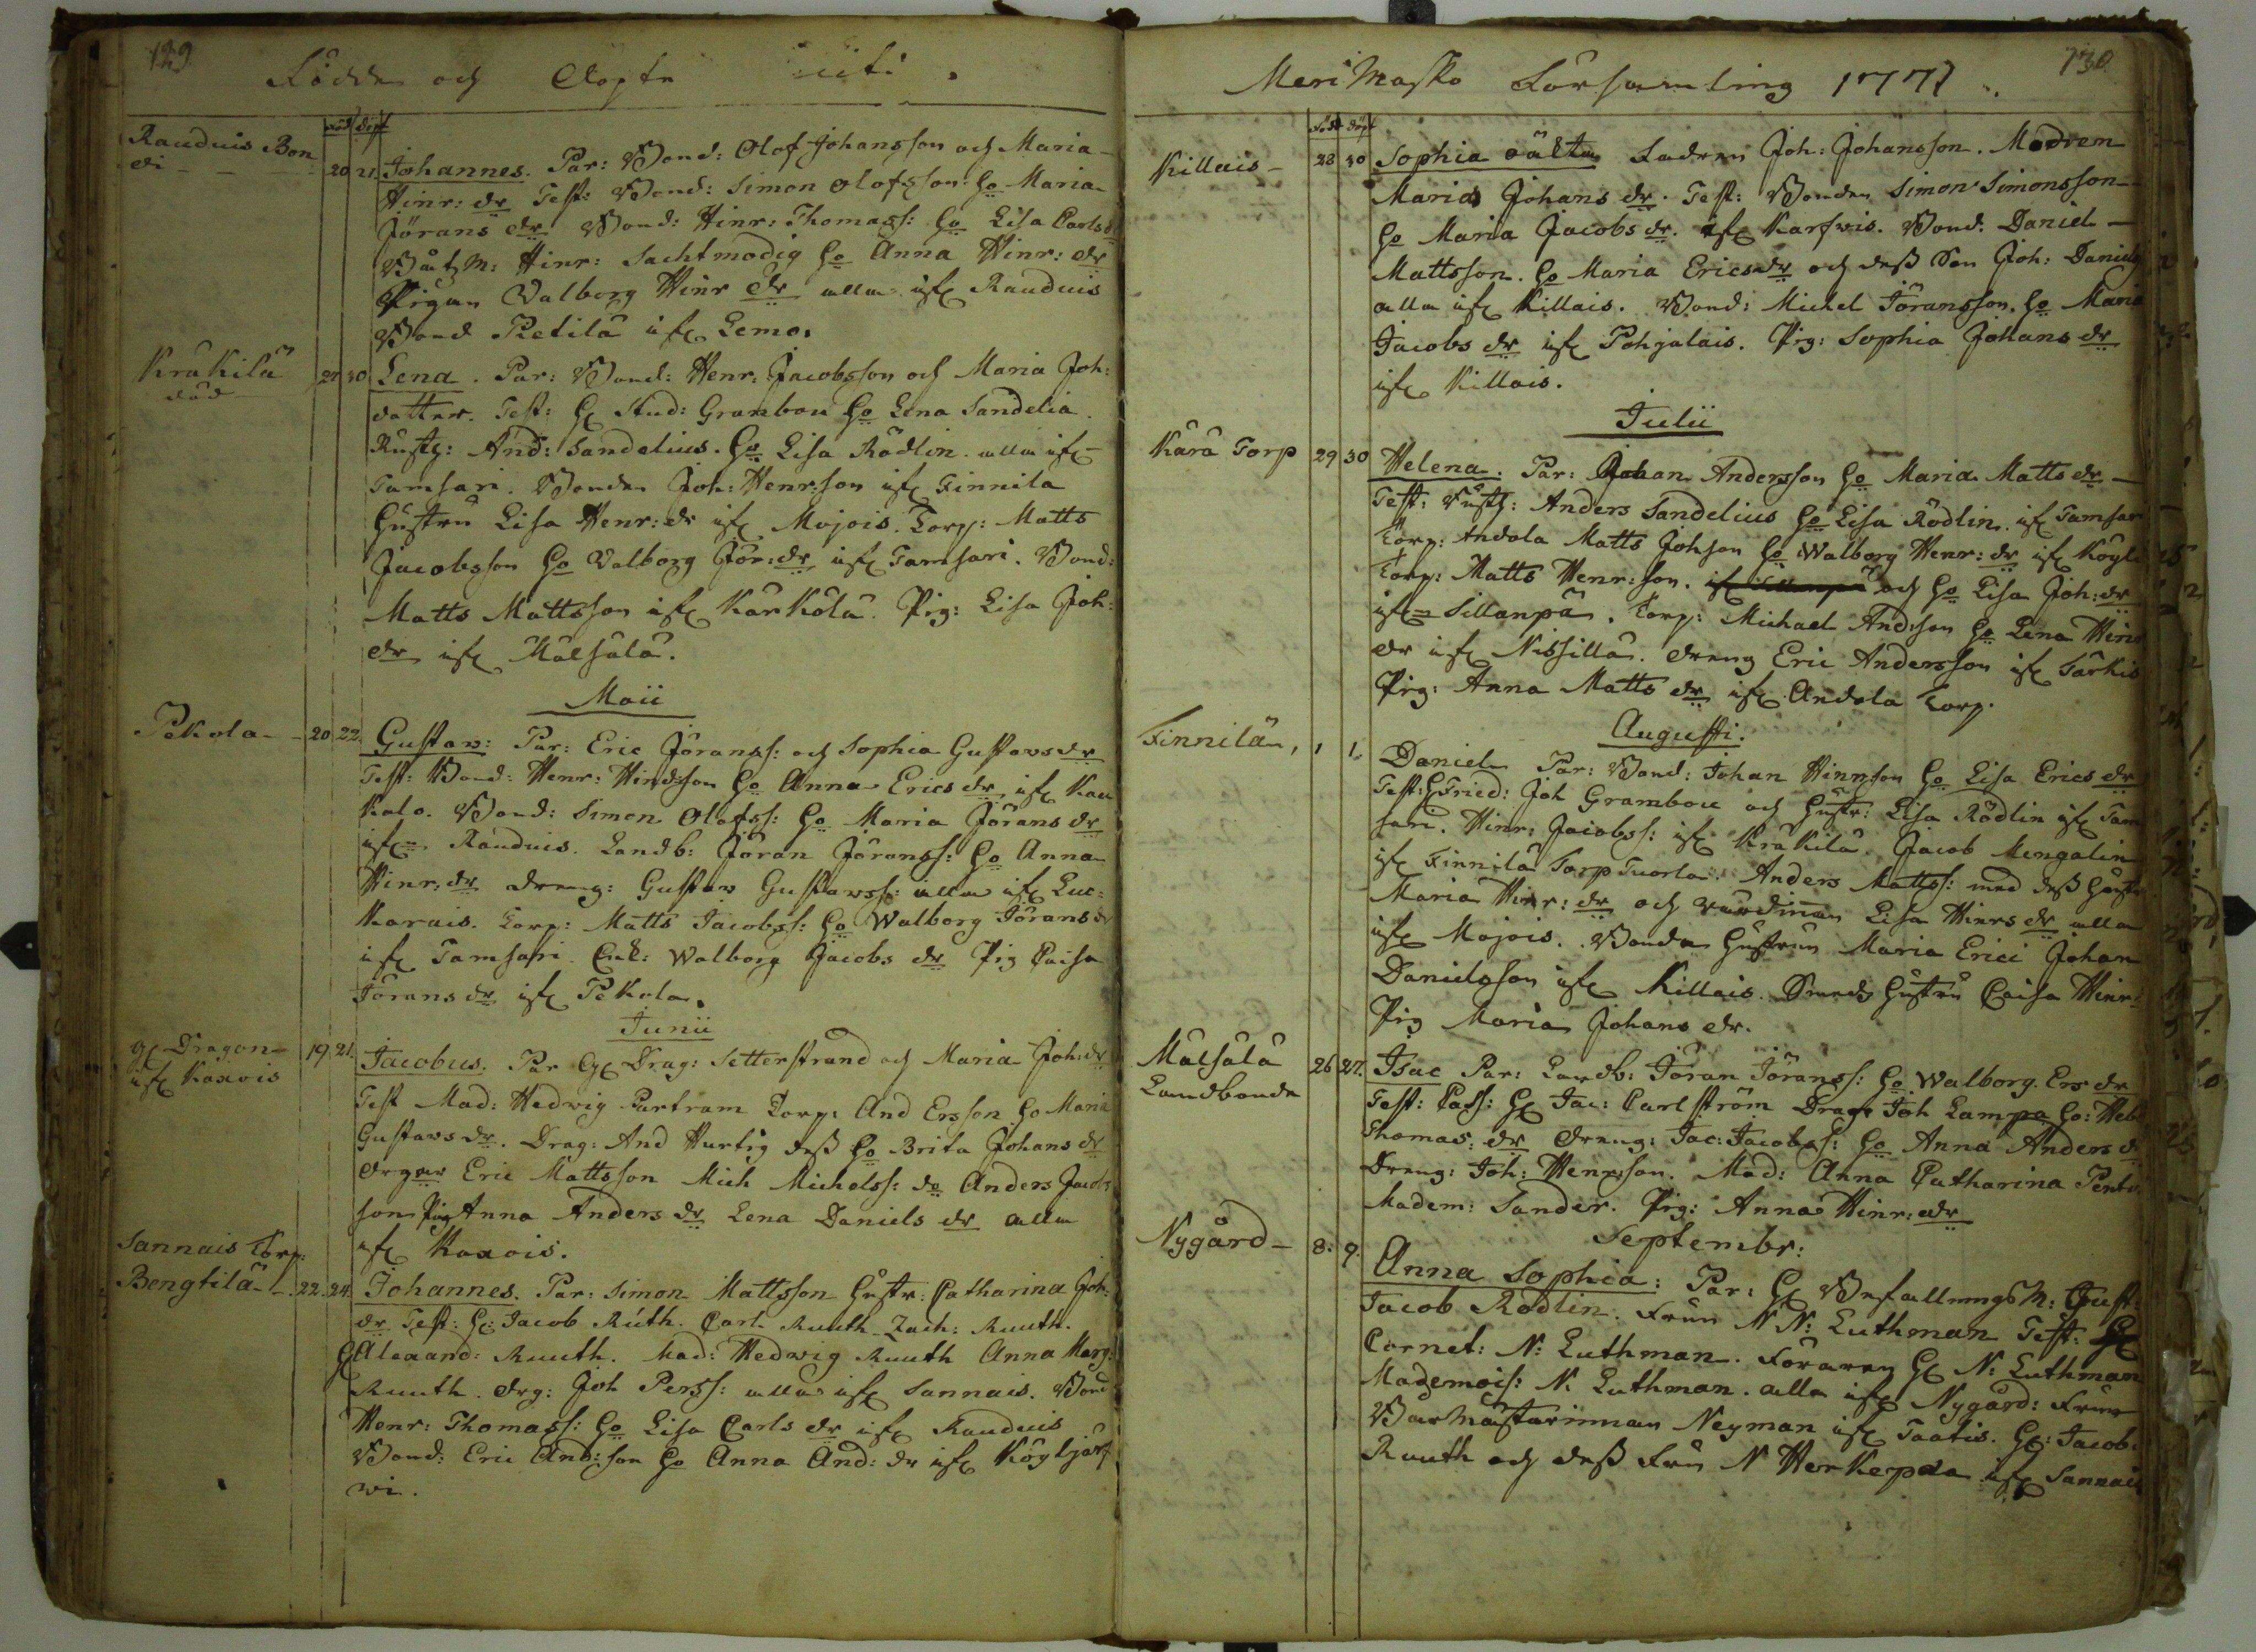 129
Födde och Döpte uti
född döpt
Rauduis Bon
di
20 21 Johannes. Par: Bond: Olof Johansson och Maria
Hinr: dr Test: Bond: Simon Olofsson: Ho Maria
Jörans dr Bond: Hinr: Thomass: Ho Lisa Carlsd
Båtzm: Hinr: Sachtmodig Ho Anna Hinr: dr
Pigan Valborg Hinr dr alla ifr Rauduis
Bond Pietilä ifr Lemo.
Kräkilä
död
27 30 Lena. Par: Bond: Henr: Jacobsson och Maria Joh:
dotter. Test: H Stud: Grambou Ho Lena Sandelia
Rustg: And: Sandelius. Ho Lisa Rödlin alla ifr
Tamsari. Bonden Joh: Henr:son ifr Finnila
Hustru Lisa Henr: dr ifr Mojois. Torp: Matts
Jacobsson Ho Valborg Jör: dr ifr Tamsari. Bond:
Matts Mattsson ifr Karkola. Pig: Lisa Joh:
dr ifr Mälsälä.
Maii
Pekola 20 22 Gustav: Par: Eric Jöranss: och Sophia Gustavs dr
Test: Bond: Henr: Hindsson Ho Anna Erics dr ifr Kau
kalo. Bond: Simon Olofss: Ho Maria Jörans dr
ifr Rauduis. Landb: Jöran Jöranss: Ho Anna
Hinr: dr dreng: Gustav Gustavss: alla ifr Luc=
karais. Torp: Matts Jacobss: Ho Walborg Jörans dr
ifr Tamsari. Enk: Walborg Jacobs dr Pig Caisa
Jörans dr ifr Pekola.
Junii
Dragon
ifr Kaxois
19 21 Jacobus. Par Drag: Setterstrand och Maria Joh: dr
Test Mad: Hedwig Partram Torp: And Ersson Ho Maria
Gustavs dr. Drag: And Hurtig dess Ho Brita Johans dr
Eric Mattsson Mich Michelss: do Anders Jacobs
son Pig Anna Anders dr Lena Daniels dr alla
ifr Kaxois.
Sannais Torp:
Bengtilä 22. 24. Johannes. Par: Simon Mattsson Hustr: Catharina Joh:
dr Test: H: Jacob Ruth. Carl Ruuth Zach: Ruuth.
H Alexand: Ruuth. Mad: Hedwig Ruuth Anna Marg:
Ruuth. drg: Joh Perss: alla ifr Sannais. Bond
Henr: Thomass: Ho Lisa Carls dr ifr Rauduis
Bond: Eric And:son Ho Anna And: dr ifr Köyljärf
wi.
Meri Masko Församling 1771
130
född döpt
Killais 28 30 Sophia oäkta Fadren Joh: Johansson. Modren
Maria Johans dr. Test: Bonden Simon Simonsson
Ho Maria Jacobs dr. ifr Karfwis. Bond. Daniel
Mattsson. Ho Maria Ericsdr och dess Son Joh: Daniels
alla ifr Killais. Bond: Michel Jöransson. Ho Maria
Jacobs dr ifr Pohjalais. Pig: Sophia Johans dr
ifr Killais.
Julii
Kara Torp 29 30 Helena. Par: Johan Andersson Ho Maria Matts dr
Test: Rustg: Anders Sandelius Ho Lisa Rödlin. ifr Tamsar
Torp: Andola Matts Johson Ho Walborg Henr: dr ifr Köyli
Torp: Matts Henr:son. och Ho Lisa Joh: dr
ifr Sillanpä. Torp: Michael And:son Ho Lena Hinr
dr ifr Nissilla. dreng Eric Andersson ifr Tarkis
Pig: Anna Matts dr ifr Andola Torp.
Augusti.
Finnilä 1 1. Daniel Par: Bond: Johan Hinrson Ho Lisa Erics dr
Test: H Joh Grambou och Hustr: Lisa Rödlin ifr Tam
sari. Hinr: Jacobss: ifr Kräkilä. Jacob Mengalin
ifr Finnilä Torp Tuorla. Anders Mattss: med dess Hustr
Maria Hinr: dr och Lisa Hinrs dr alla
ifr Mojois. Bonden Hustrun Maria Erici Johan
Danielsson ifr Killais. Hustru Caisa Hinr:
Pig Maria Johans dr.
Mälsälä
Landbonde
26 27. Isac Par: Landb: Jöran Jöranss: Ho Walborg Ers dr
Test: H Jac: Carlström Drag: Joh Lampa Ho: Heb
Thomas: dr dreng: Jac: Jacobss: Ho Anna Anders d
Dreng: Joh: Henr:son. Mad: Anna Catharina
Madem: Sander. Pig: Anna Hinr: dr
Septembr:
Nygård 8. 9. Anna Sophia: Par: H BefallningsM: Gust:
Jacob Rödlin. Frun N N: Luthman Test: H
Cornet: N: Luthman. H N: Luthman
Mademois: N: Luthman. alla ifr Nygård: Frun
Neyman ifr Taatis. H: Jacob.
Ruuth och dess Fru N Herkepæa ifr Sannais